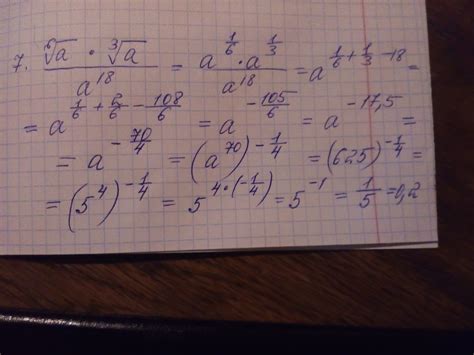 7. \frac{\sqrt[6]{a} \cdot \sqrt[3]{a}}{a^{18}} = \frac{a^{\frac{1}{6}} \cdot a^{\frac{1}{3}}}{a^{18}} = a^{\frac{1}{6} + \frac{1}{3} - 18} =
= a^{\frac{1}{6} + \frac{2}{6} - \frac{108}{6}} = a^{-\frac{105}{6}} = a^{-17,5} =
= a^{-\frac{70}{4}} = (a^{70})^{-\frac{1}{4}} = (625)^{-\frac{1}{4}} =
= (5^{4})^{-\frac{1}{4}} = 5^{4 \cdot (-\frac{1}{4})} = 5^{-1} = \frac{1}{5} = 0,2